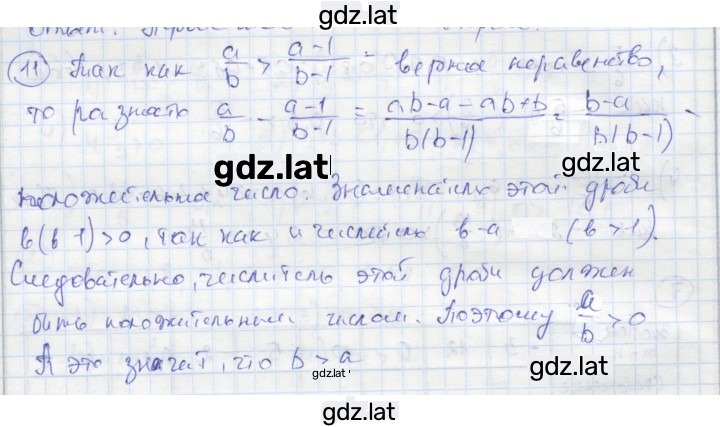 gdz.lat
11 Так как a/b > (a-1)/(b-1) - верное неравенство,
то разность a/b - (a-1)/(b-1) = (ab-a-ab+b)/(b(b-1)) = (b-a)/(b(b-1)) -
gdz.lat
положительное число. Знаменатель этой дроби
b(b-1)>0, так как и числитель b-a (b>1).
Следовательно, числитель этой дроби должен
быть положительным числом. Поэтому a/b>0
А это значит, что b>a
gdz.lat
gdz.lat